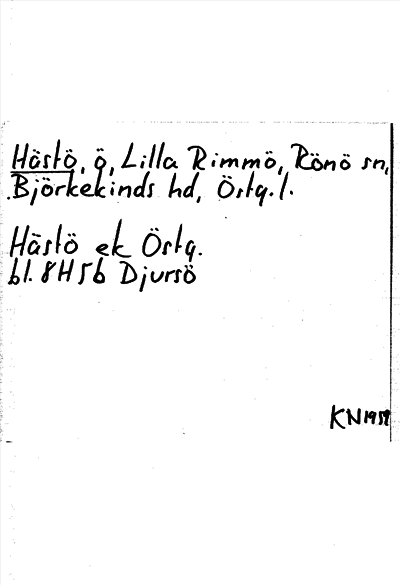 Hästö, ö, Lilla Rimmö, Rönö sn,
Björkekinds hd, Östg. l.
Hästö ek Östg.
bl. 8H5b Djursö
KN 1959